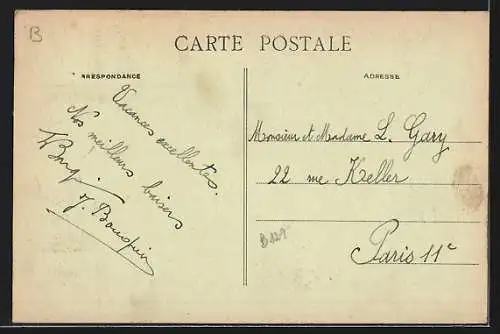 B
CARTE POSTALE
RRESPONDANCE
ADRESSE
Vacances excellentes.
Nos meilleurs baisers
Monsieur et Madame L. Gary
22 rue Keller
Paris 11e